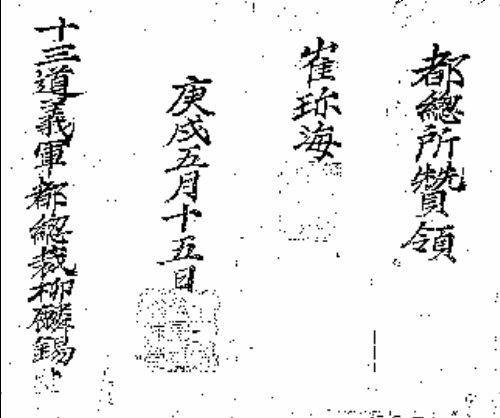 都總所贊領
崔珎海
庚戌五月十五日
十三道義軍都總裁柳麟錫